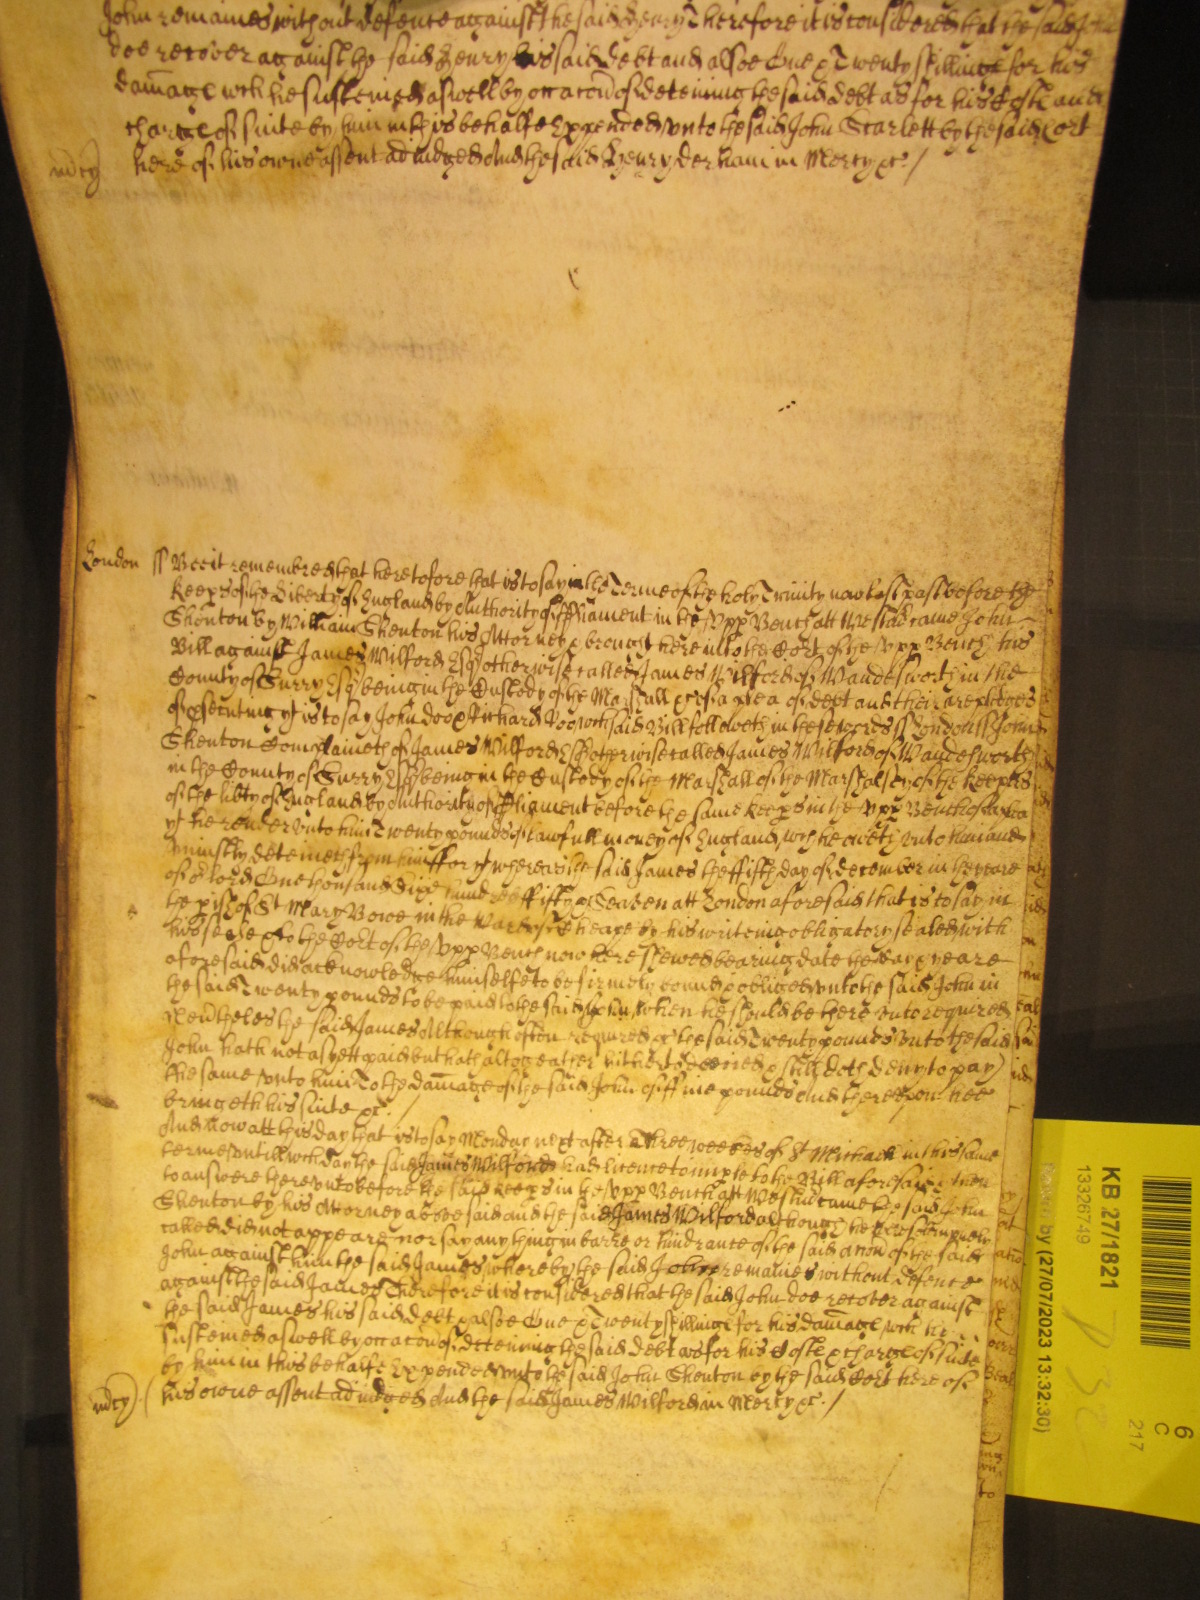 John remaines without defence against the said Henry Therefore it is considered that the said John
doe recover against the said Henry his said debt and alsoe One & Twenty shillings for his
damage wch he susteined aswell by occacon of deteining the said debt as for his Costs and
charges of suite by him in this behalfe Expended vnto the said John Scarlett by the said Cort
here of his owne assent adiudged And the said Henry Derham in Mercy &c /
mcy
London ss Bee it remembred that heretofore that is to say in the Terme of the holy Trinity now last past before the
Keeprs of the Liberty of England by Authority of Parliament in the Vpp Bench att Westmr came John
Skenton by William Skenton his Attorney & brought here into the Cort of the Vpp Bench his
Bill against James Wilford Esqr otherwise called James Wilford of Wandesworth in the
County of Surry Esqr being in the Custody of the Marshall &c of a plea of debt and their are pledges
of prsecuting yt is to say John doo & Richard Roo wch said Bill followeth in these words ss London ss John
Skenton Complaineth of James Wilford Esqr otherwise called James Wilford of Wandesworth
in the County of Surry Esqr being in the Custody of the Marshall of the Marshalsey of the Keeprs
of the libty of England by Authority of Parliament before the same Keeprs in the Vpp Bench of a plea
yt he render vnto him Twenty pounds of lawfull money of England wch he oweth vnto him and
vniustly deteineth from him ffor yt whereas the said James the ffifth day of december in the yeare
of or lord One thousand Sixe hundred ffifty & Seaven att London aforesaid that is to say in
the prish of St Mary Bowe in the Ward of Cheape by his writeing obligatory sealed with
his seale & to the Cort of the Vpp Bench now here shewed bearing date the day & yeare
aforesaid did acknowledge himselfe to be firmely bound & obliged vnto the said John in
the said Twenty pounds to be paid to the said John when he should be there vnto required
Neurtheles the said James Although often required &c the said Twenty pounds vnto the said
John hath not as yett paid but hath altogeather hitherto denied & still doth deny to pay
the same vnto him To the damage of the said John of ffive pounds And thereupon hee
bringeth his suite &c /
And now att this day that is to say Monday next after Three weekes of St Michaell in this same
terme vntill wch day the said James Wilford had licence to imple to the Bill aforesaid & then
to answere therevnto before the said Keeprs in the Vpp Bench att Westmr came the said John
Skenton by his Attorney abovesaid and the said James Wilford although he were solempnely
called did not appeare nor say any thing in barre or hindrance of the said accon of the said
John against him the said James whereby the said John remaines without defence
against the said James Therefore it is considered that the said John doe recover against
the said James his said debt & alsoe One & Twenty shillings for his damage wch he
susteined aswell by occacon of deteining the said debt as for his Costs & charges of suite
by him in this behalfe Expended vnto the said John Skenton by the said Cort here of
his owne assent adiudged And the said James Wilford in Mercy &c /
mcy
KB 27/1821
13326749
by (27/07/2023 13:32:30)
6
C
217